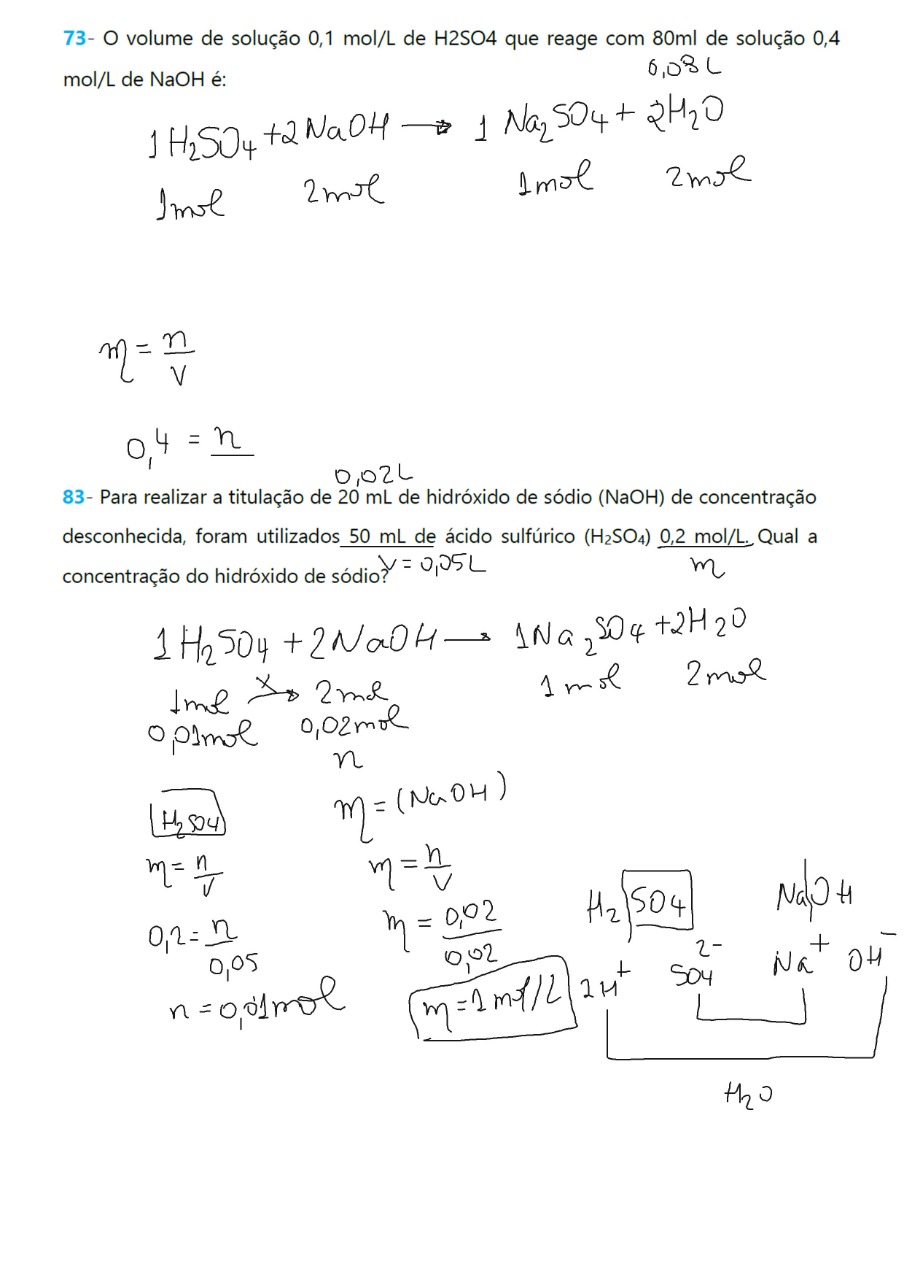 73- O volume de solução 0,1 mol/L de H2SO4 que reage com 80ml de solução 0,4
0,08L
mol/L de NaOH é:
1H₂SO₄ + 2NaOH → 1 Na₂SO₄ + 2H₂O
1mol 2mol 1mol 2mol
m = n/v
0,4 = n
0,02L
83- Para realizar a titulação de 20 mL de hidróxido de sódio (NaOH) de concentração
desconhecida, foram utilizados 50 mL de ácido sulfúrico (H₂SO₄) 0,2 mol/L. Qual a
concentração do hidróxido de sódio? V = 0,05L m
1H₂SO₄ + 2NaOH → 1Na₂SO4 + 2H₂O
1mol x→ 2mol 1mol 2mol
0,01mol 0,02mol
n
H₂SO4
m = n/v
0,2 = n/0,05
n = 0,01mol
m = (NaOH)
m = n/v
m = 0,02/0,02
m = 1mol/L
H₂SO4 NaOH
2H⁺ SO4²⁻ Na⁺ OH⁻
H₂O